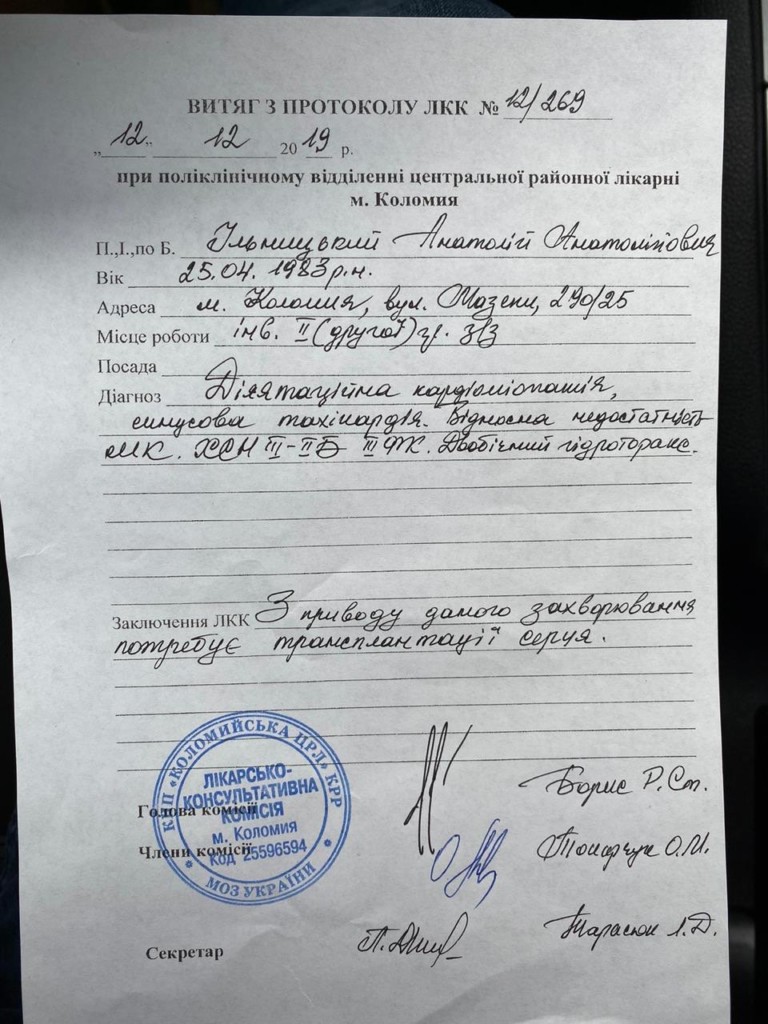 ВИТЯГ З ПРОТОКОЛУ ЛКК № 12/269
„12" 12 2019 р.
при поліклінічному відділенні центральної районної лікарні
м. Коломия
П.,І.,по Б. Ільницький Анатолій Анатолійович
Вік 25.04. 1983 р.н.
Адреса м. Коломия, вул. Мазепи, 290/25
Місце роботи інв. II (другої) гр. з/з
Посада
Діагноз Ділятаційна кардіоміопатія,
синусова тахікардія. Відносна недостатність
МК. ХСН III-IIБ III ФК. Двобічний гідроторакс.
Заключення ЛКК З приводу даного захворювання
потребує трансплантації серця.
КНП «КОЛОМИЙСЬКА ЦРЛ» КРР
ЛІКАРСЬКО-
КОНСУЛЬТАТИВНА
КОМІСІЯ
м. Коломия
Код 25596594
МОЗ УКРАЇНИ
Голова комісії Борис Р.Ст.
Члени комісії О.М.
Секретар Тарасюк Л.Д.